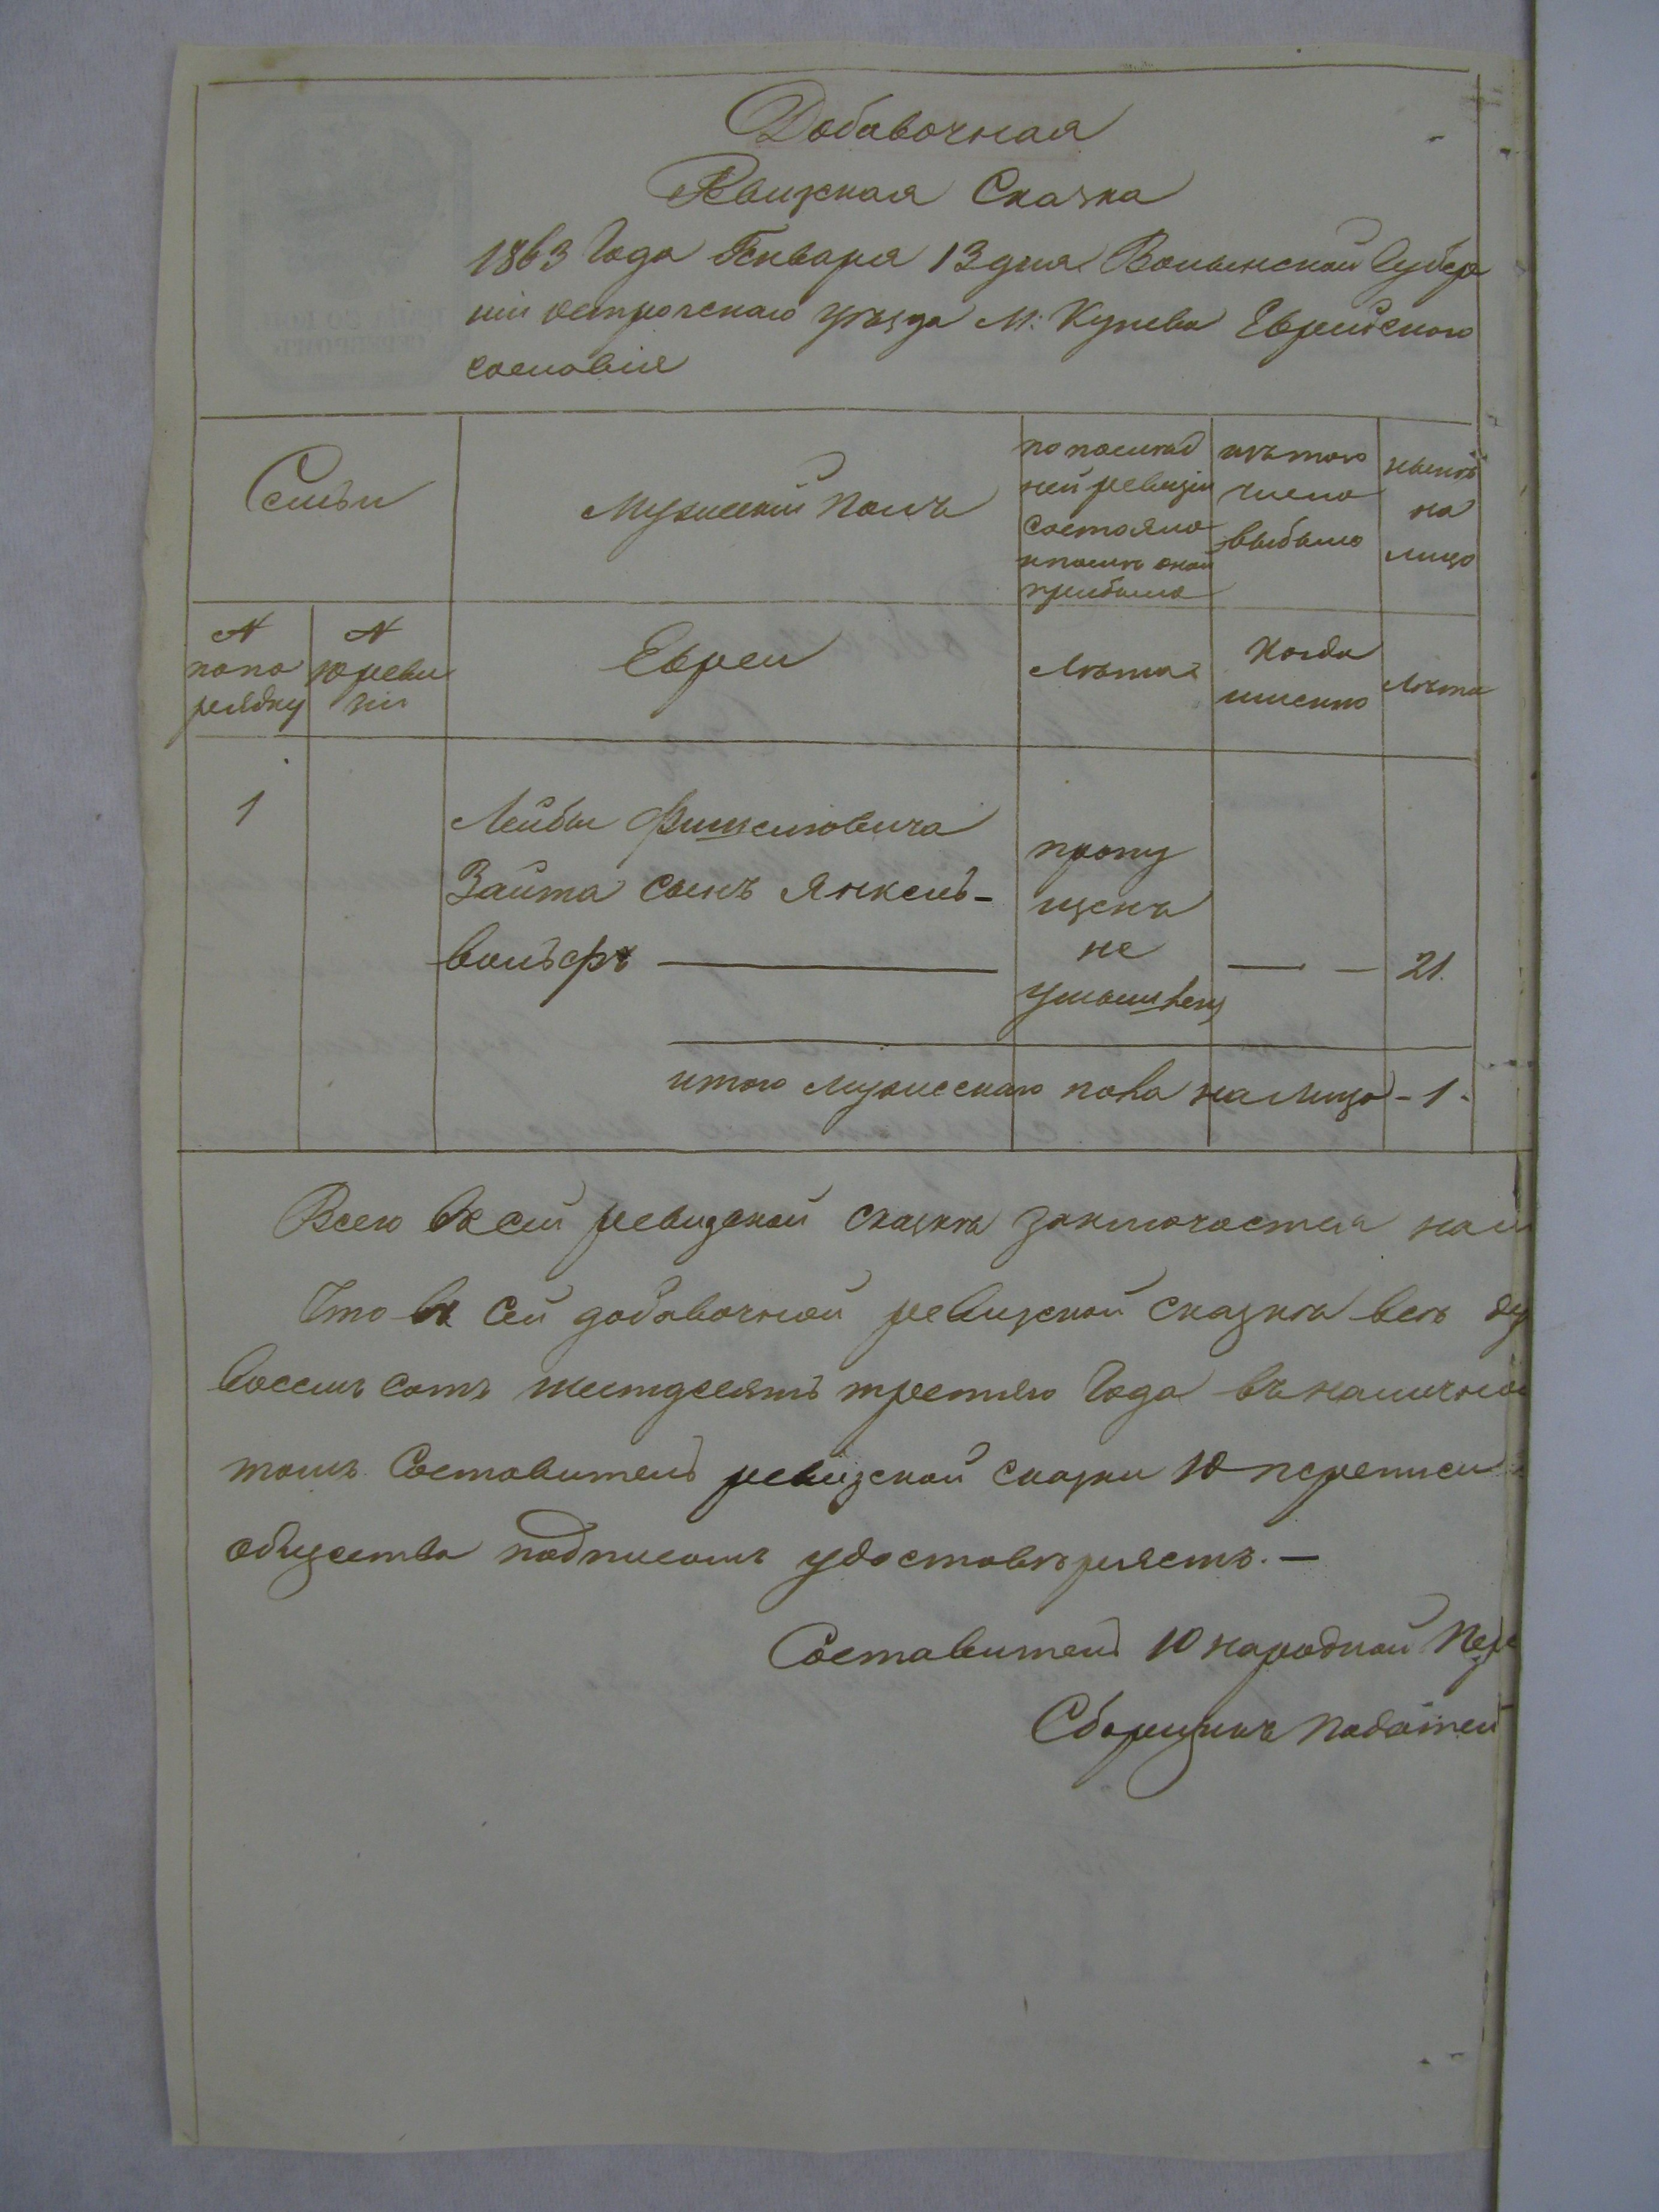 Добавочная
Ревизская Сказка
1863 Года Генваря 13 дня Волынской Губер
ніи острогскаго уѣзда М: Кунева Еврейского
сословія
Семьи
Мужескій полъ
по послѣд
ней ревизіи
состояло
и послѣ оной
прибыло
изъ того
числа
выбыло
нынѣ
на
лицо
№
по по
рядку
№
10 реви
зіи
Евреи
Лѣта
Когда
именно
Лѣта
1
Лейбы Фишелювича
Зайта сынъ Янкель-
вольфъ
пропу
щенъ
не
21.
итого мужескаго пола на лицо - 1.
Всего въ сей ревизской сказкѣ заключается нали
Что въ сей добавочной ревизской сказкѣ всѣ ду
восемь сотъ шестдесятъ третяго Года въ налично
томъ Составитель ревизской сказки 10 переписи
общества подписомъ удостовѣряетъ. —
Составитель 10 народной Пере
Сборщикъ Податей